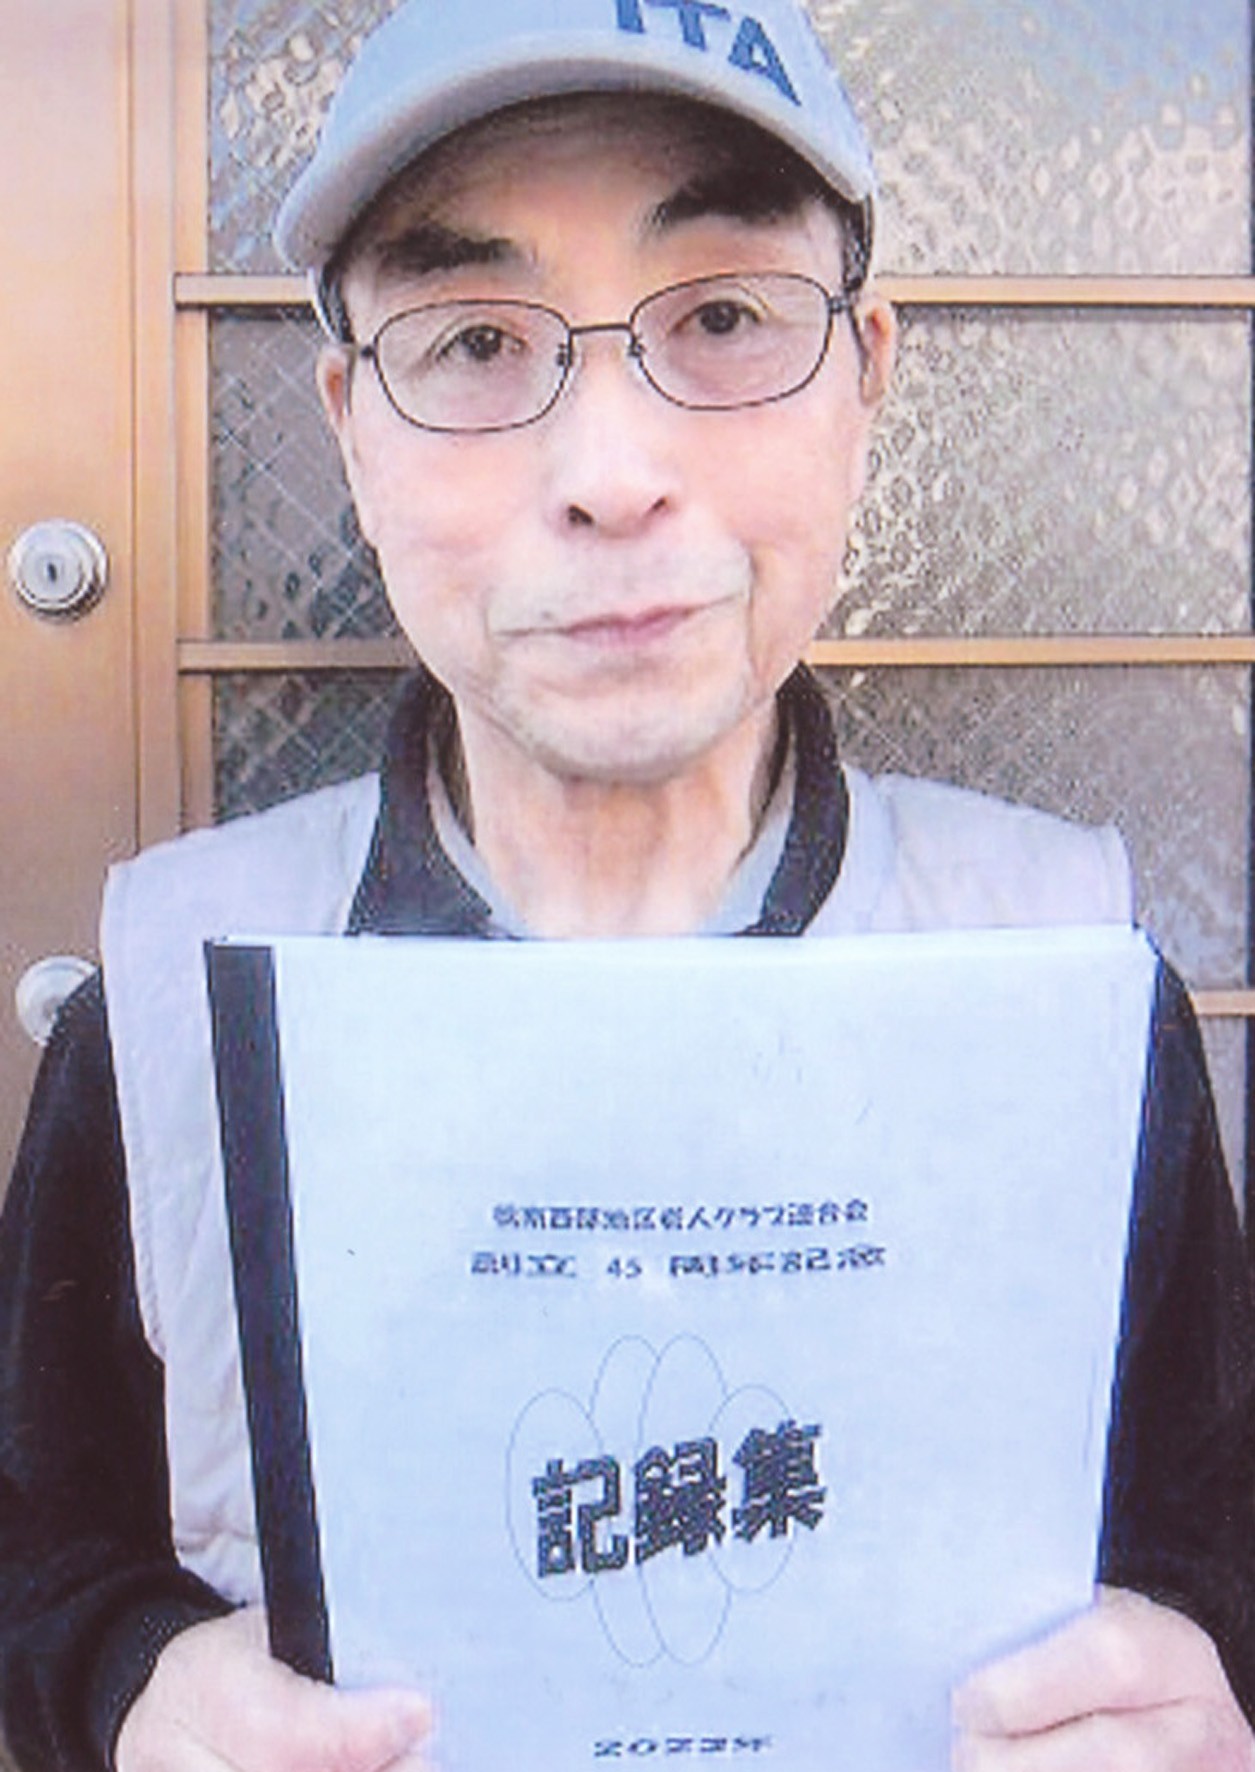 ITA
西部地区老人クラブ連合会
創立 45 周年記念
記録集
2022年